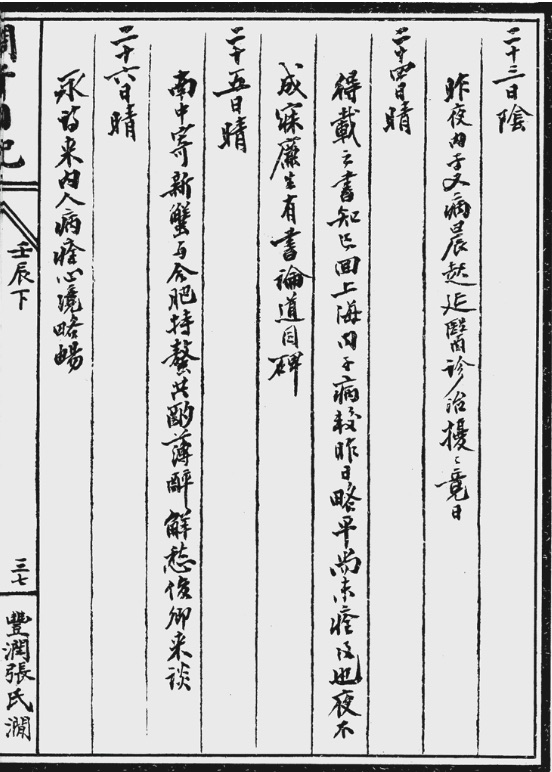 二十三日陰
昨夜內子又病晨起延醫診治擾〻竟日
二十四日晴
得載之書知已回上海內子病較昨日略早尚未痊復也夜不
成寐廉生有書論道因碑
二十五日晴
南中寄新蟹与合肥持螯共酌薄醉解愁俊卿来談
二十六日晴
永詩来內人病痊心境略暢
澗于日記
壬辰下
三七
豐潤張氏澗